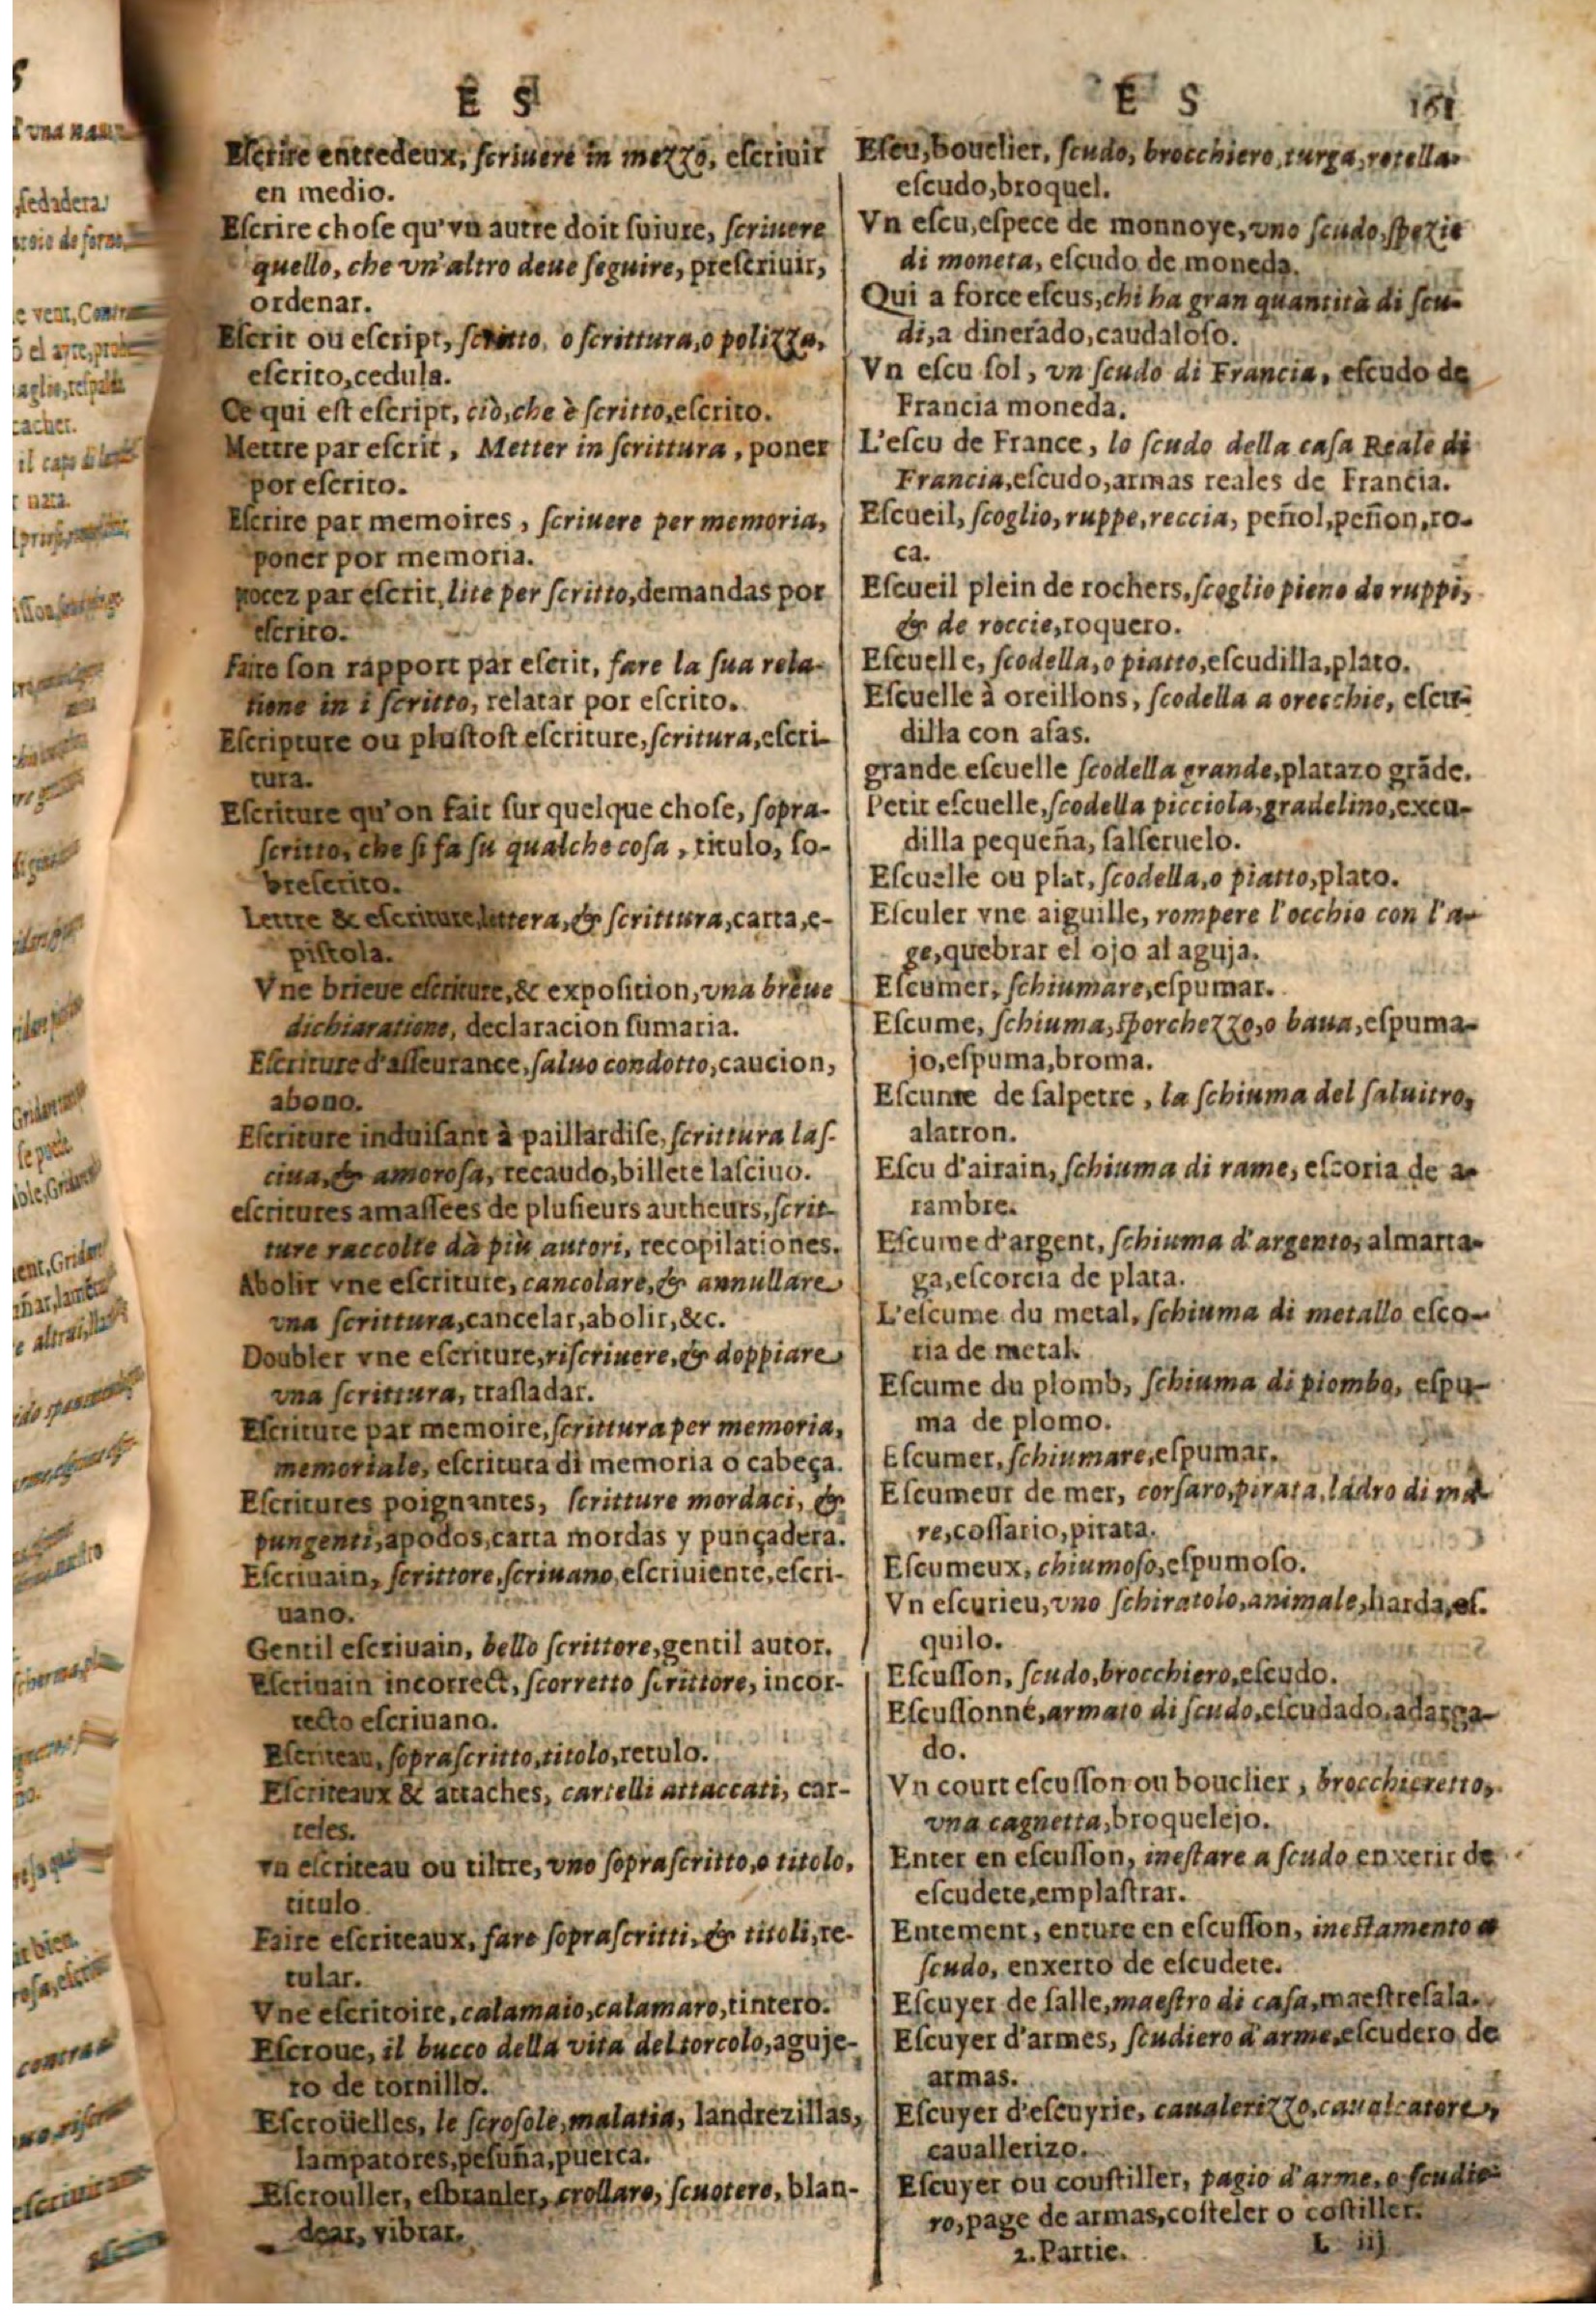 E S
Eſcrire entredeux, ſcriuere in mezzo, eſcriuir
en medio.
Eſcrire choſe qu'vn autre doit ſuiure, ſcriuere
quello, che vn'altro deue ſeguire, preſcriuir,
ordenar.
Eſcrit ou eſcript, ſcritto, o ſcrittura, o polizza,
eſcrito, cedula.
Ce qui eſt eſcript, ciò, che è ſcritto, eſcrito.
Mettre par eſcrit, Metter in ſcrittura, poner
por eſcrito.
Eſcrire par memoires, ſcriuere per memoria,
poner por memoria.
procez par eſcrit, lite per ſcritto, demandas por
eſcrito.
Faire ſon rapport par eſcrit, fare la ſua rela-
tione in i ſcritto, relatar por eſcrito.
Eſcripture ou pluſtoſt eſcriture, ſcritura, eſcri-
tura.
Eſcriture qu'on fait ſur quelque choſe, ſopra-
ſcritto, che ſi fa ſu qualche coſa, titulo, ſo-
breſcrito.
Lettre & eſcriture, lettera, & ſcrittura, carta, e-
piſtola.
Vne brieve eſcriture, & expoſition, vna breue
dichiaratione, declaracion ſumaria.
Eſcriture d'aſſeurance, ſaluo condotto, caucion,
abono.
Eſcriture induiſant à paillardiſe, ſcrittura laſ-
ciua, & amoroſa, recaudo, billete laſciuo.
eſcritures amaſſees de pluſieurs autheurs, ſcrit-
ture raccolte dà più autori, recopilationes.
Abolir vne eſcriture, cancolare, & annullare
vna ſcrittura, cancelar, abolir, &c.
Doubler vne eſcriture, riſcriuere, & doppiare
vna ſcrittura, traſladar.
Eſcriture par memoire, ſcrittura per memoria,
memoriale, eſcritura di memoria o cabeça.
Eſcritures poignantes, ſcritture mordaci, &
pungenti, apodos, carta mordas y punçadera.
Eſcriuain, ſcrittore, ſcriuano, eſcriuiente, eſcri-
uano.
Gentil eſcriuain, bello ſcrittore, gentil autor.
Eſcriuain incorrect, ſcorretto ſcrittore, incor-
recto eſcriuano.
Eſcriteau, ſopraſcritto, titolo, retulo.
Eſcriteaux & attaches, cartelli attaccati, car-
teles.
vn eſcriteau ou tiltre, vno ſopraſcritto, o titolo,
titulo
Faire eſcriteaux, fare ſopraſcritti, & titoli, re-
tular.
Vne eſcritoire, calamaio, calamaro, tintero.
Eſcroue, il bucco della vita del torcolo, aguje-
ro de tornillo.
Eſcroüelles, le ſcroſole, malatia, landrezillas,
lampatores, peſuña, puerca.
Eſcrouller, eſbranler, crollare, ſcuotere, blan-
dear, vibrar.
E S 161
Eſcu, bouclier, ſcudo, brocchiero, turga, rotella
eſcudo, broquel.
Vn eſcu, eſpece de monnoye, vno ſcudo, ſpezie
di moneta, eſcudo de moneda.
Qui a force eſcus, chi ha gran quantità di ſcu-
di, a dinerado, caudaloſo.
Vn eſcu ſol, vn ſcudo di Francia, eſcudo de
Francia moneda.
L'eſcu de France, lo ſcudo della caſa Reale di
Francia, eſcudo, armas reales de Francia.
Eſcueil, ſcoglio, ruppe, reccia, peñol, peñon, ro-
ca.
Eſcueil plein de rochers, ſcoglio pieno de ruppi,
& de roccie, roquero.
Eſcuelle, ſcodella, o piatto, eſcudilla, plato.
Eſcuelle à oreillons, ſcodella a orecchie, eſcu-
dilla con aſas.
grande eſcuelle ſcodella grande, platazo grāde.
Petit eſcuelle, ſcodella picciola, gradelino, excu-
dilla pequeña, ſalſeruelo.
Eſcuelle ou plat, ſcodella, o piatto, plato.
Eſculer vne aiguille, rompere l'occhio con l'a-
ge, quebrar el ojo al aguja.
Eſcumer, ſchiumare, eſpumar.
Eſcume, ſchiuma, ſporchezzo, o baua, eſpuma-
jo, eſpuma, broma.
Eſcume de ſalpetre, la ſchiuma del ſaluitro,
alatron.
Eſcu d'airain, ſchiuma di rame, eſcoria de a-
rambre.
Eſcume d'argent, ſchiuma d'argento, almarta-
ga, eſcorcia de plata.
L'eſcume du metal, ſchiuma di metallo eſco-
ria de metal.
Eſcume du plomb, ſchiuma di piombo, eſpu-
ma de plomo.
Eſcumer, ſchiumare, eſpumar.
Eſcumeur de mer, corſaro, pirata, ladro di ma-
re, coſſario, pirata.
Eſcumeux, chiumoſo, eſpumoſo.
Vn eſcurieu, vno ſchiratolo, animale, harda, eſ.
quilo.
Eſcuſſon, ſcudo, brocchiero, eſcudo.
Eſcuſſonné, armato di ſcudo, eſcudado, adarga-
do.
Vn court eſcuſſon ou bouclier, brocchieretto,
vna cagnetta, broquelejo.
Enter en eſcuſſon, ineſtare a ſcudo enxerir de
eſcudete, emplaſtrar.
Entement, enture en eſcuſſon, ineſtamento a
ſcudo, enxerto de eſcudete.
Eſcuyer de ſalle, maeſtro di caſa, maeſtreſala.
Eſcuyer d'armes, ſcudiero d'arme, eſcudero de
armas.
Eſcuyer d'eſcuyrie, caualerizzo, caualcatore,
cauallerizo.
Eſcuyer ou couſtiller, pagio d'arme, o ſcudie-
ro, page de armas, coſteler o coſtiller.
2. Partie. L iij